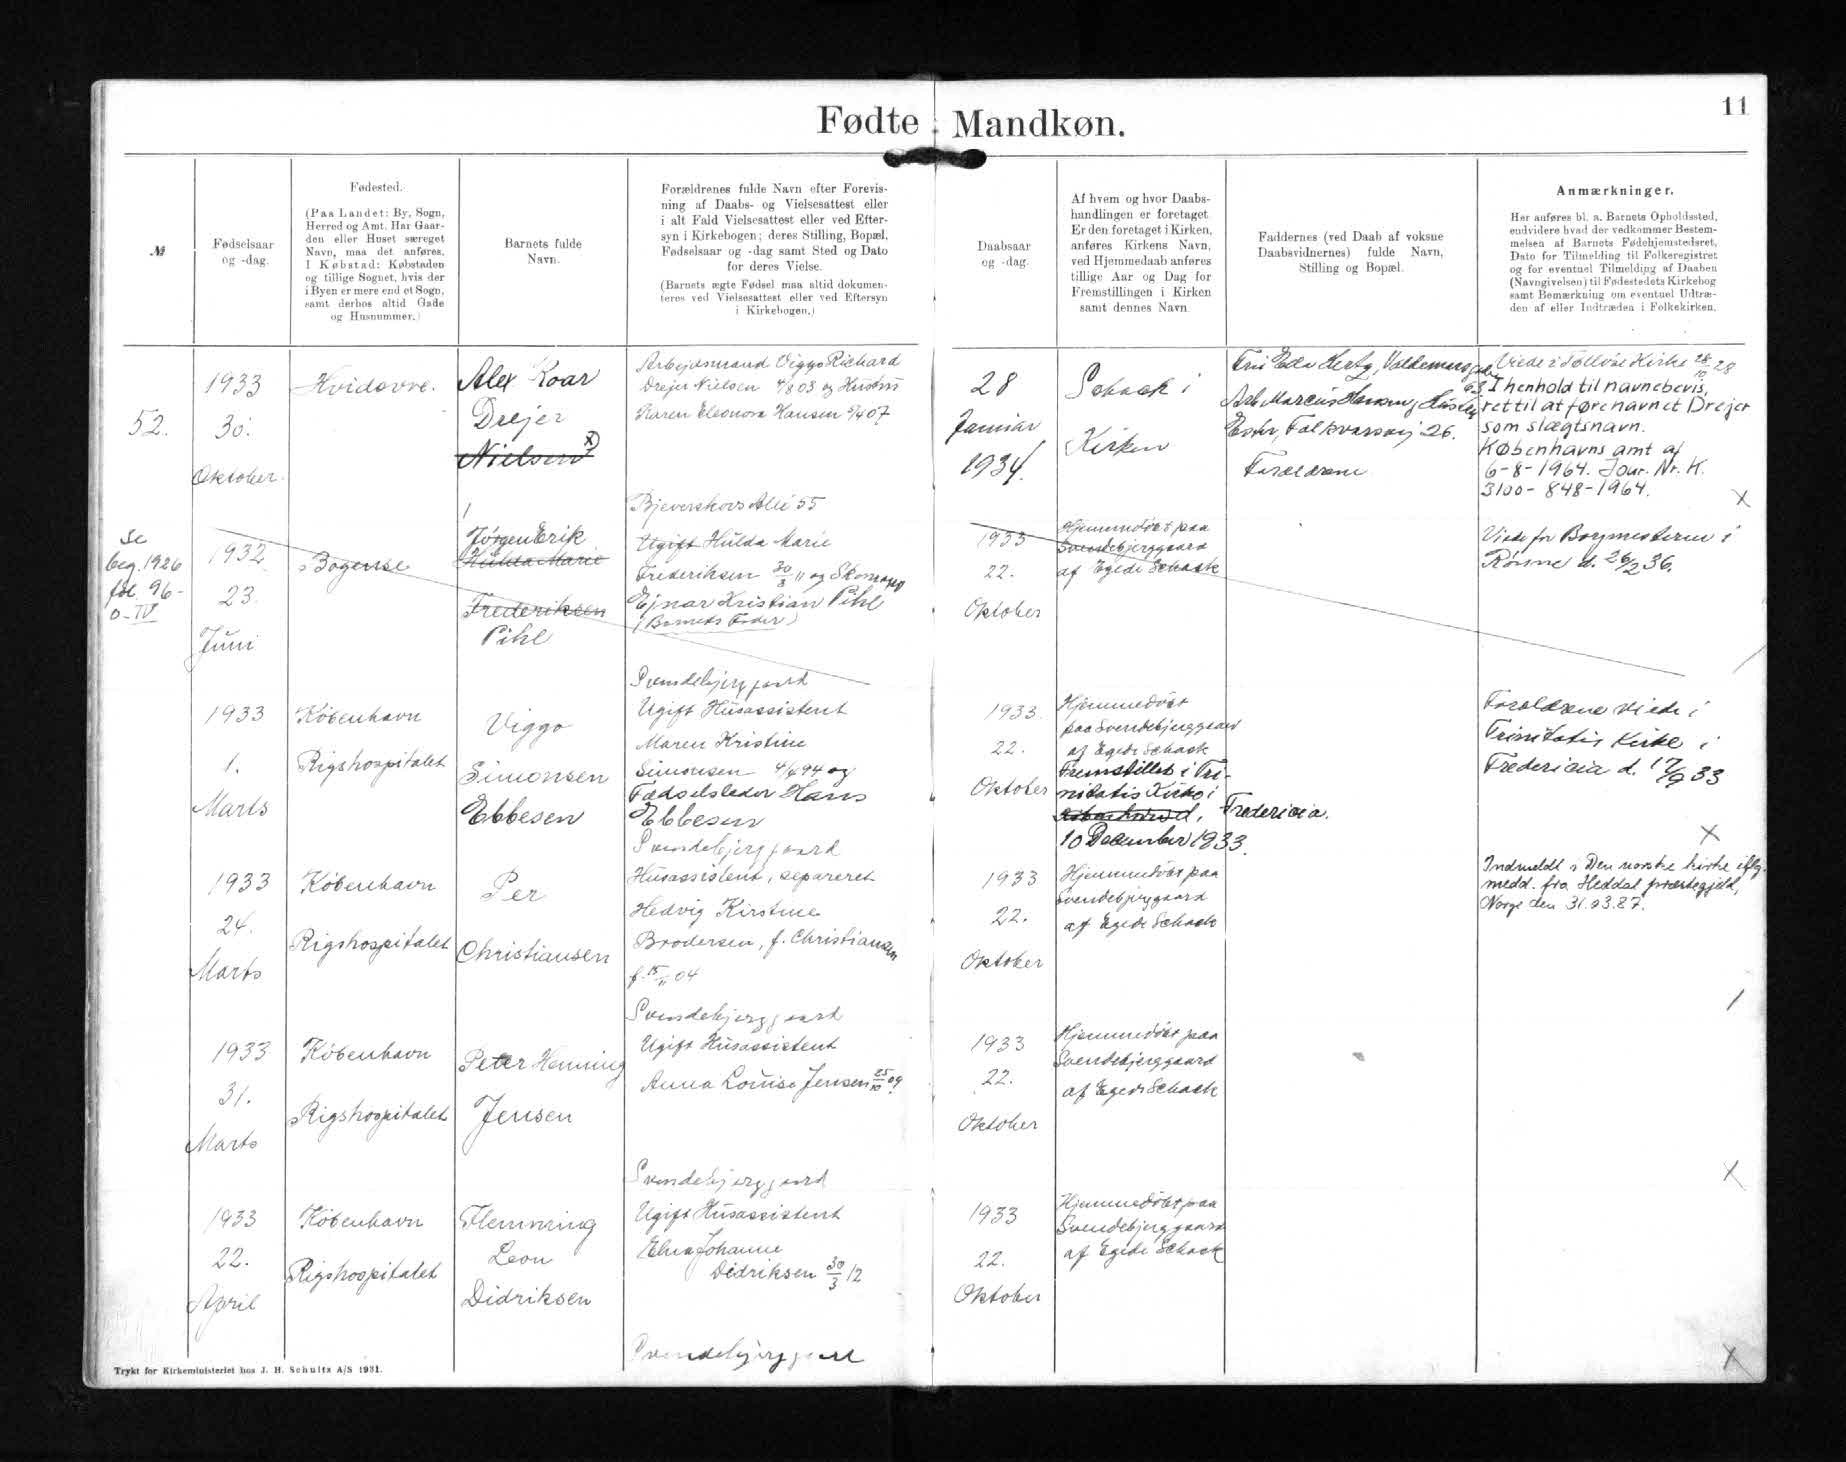 11
Fødte Mandkøn.
№
Fødselsaar
og -dag.
Fødested.
(Paa Landet: By, Sogn,
Herred og Amt. Har Gaar-
den eller Huset særeget
Navn, maa det anføres.
I Købstad: Købstaden
og tillige Sognet, hvis der
i Byen er mere end et Sogn,
samt derhos altid Gade
og Husnummer.)
Barnets fulde
Navn.
Forældrenes fulde Navn efter Forevis-
ning af Daabs- og Vielsesattest eller
i alt Fald Vielsesattest eller ved Efter-
syn i Kirkebogen; deres Stilling, Bopæl,
Fødselsaar og -dag samt Sted og Dato
for deres Vielse.
(Barnets ægte Fødsel maa altid dokumen-
teres ved Vielsesattest eller ved Eftersyn
i Kirkebogen.)
Daabsaar
og -dag.
Af hvem og hvor Daabs-
handlingen er foretaget.
Er den foretaget i Kirken,
anføres Kirkens Navn,
ved Hjemmedaab anføres
tillige Aar og Dag for
Fremstillingen i Kirken
samt dennes Navn.
Faddernes (ved Daab af voksne
Daabsvidnernes) fulde Navn,
Stilling og Bopæl.
Anmærkninger.
Her anføres bl. a. Barnets Opholdssted,
endvidere hvad der vedkommer Bestem-
melsen af Barnets Fødehjemstedsret,
Dato for Tilmelding til Folkeregistret
og for eventuel Tilmelding af Daaben
(Navngivelsen) til Fødestedets Kirkebog
samt Bemærkning om eventuel Udtræ-
den af eller Indtræden i Folkekirken.
52.
1933
30.
Oktober.
Hvidovre.
Alex Roar
Drejer
Nielsen x)
Arbejdsmand Viggo Richard
Drejer Nielsen 4/8 03 og Hustru
Karen Eleonora Hansen 07
Bjeverskovs Alle 55
28
Januar
1934.
Schack i
Kirken
Fru Eda Valdemarsgade
63
Arb. Marcus Hansen, Hustru
Ester, 26.
Forældrene
Viede i Kirke 28/10 28
I henhold til navnebevis,
ret til at føre navnet Drejer
som slægtsnavn.
Københavns amt af
6-8-1964. Jour. Nr. K.
3100-848-1964.
X
Se
beg. 1926
fol. 96-
0-IV
1932
23.
Juni
Bogense
Jørgen Erik
Hulda Marie
Frederiksen
Pihl
Ugift Hulda Marie
Frederiksen 30/3 11 og
Ejnar Kristian Pihl
(Barnets Fader)
Svendebjerggaard
1933
22.
Oktober
Hjemmedøbt paa
Svendebjerggaard
af Egede Schack
Viede for Borgmesteren i
Rønne d. 26/2 36.
1933
1.
Marts
København
Rigshospitalet
Viggo
Simonsen
Ebbesen
Ugift Husassistent
Maren Kristine
Simonsen 94 og
Fødselsleder Hans
Ebbesen
Svendebjerggaard
1933
22.
Oktober
Hjemmedøbt
paa Svendebjerggaard
af Egede Schack
Fremstillet i Tri-
nitatis Kirke i
Fredericia.
10 December 1933.
Forældrene viede i
Trinitatis Kirke i
Fredericia d. 17/9 33
X
1933
24.
Marts
København
Rigshospitalet
Per
Christiansen
Husassistent, separeret
Hedvig Kirstine
Brodersen, f. Christiansen
f. 15/11 04
Svendebjerggaard
1933
22.
Oktober
Hjemmedøbt paa
Svendebjerggaard
af Egede Schack
Indmeldt i Den norske kirke iflg.
medd. fra Heddal prestegjeld,
Norge den 31.03.87.
1933
31.
Marts
København
Rigshospitalet
Peter Henning
Jensen
Ugift Husassistent
Anna Louise Jensen 25/10 09
Svendebjerggaard
1933
22.
Oktober
Hjemmedøbt paa
Svendebjerggaard
af Egede Schack
X
1933
22.
April
København
Rigshospitalet
Flemming
Leon
Didriksen
Ugift Husassistent
Elna Johanne
Didriksen 30/3 12
Svendebjerggaard
1933
22.
Oktober
Hjemmedøbt paa
Svendebjerggaard
af Egede Schack
X
Trykt for Kirkeministeriet hos J. H. Schultz A/S 1931.